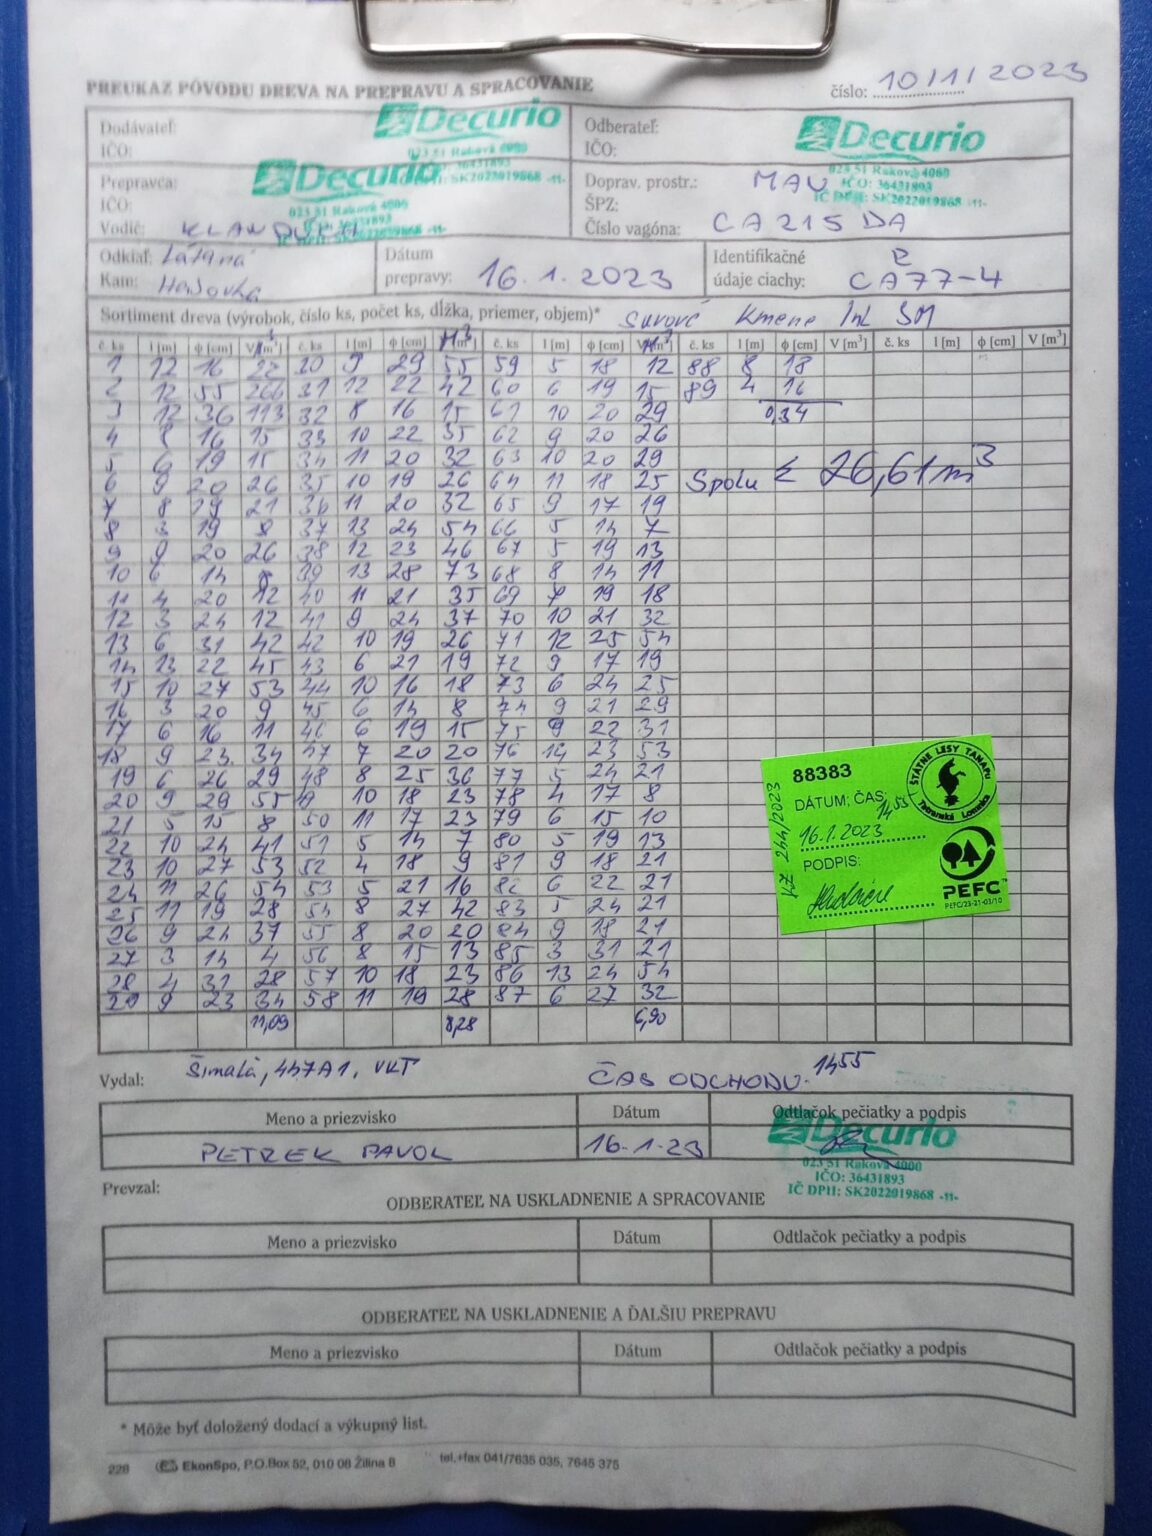 PREUKAZ PÔVODU DREVA NA PREPRAVU A SPRACOVANIE
číslo: 10/1/2023
Dodávateľ: Decurio
IČO: 023 51 Raková 4000
Odberateľ: Decurio
IČO:
Prepravca: Decurio
IČO: 023 51 Raková 4000
Vodič:
Doprav. prostr.: MAN
ŠPZ:
Číslo vagóna: CA215DA
023 51 Raková 4000
IČO: 36431893
IČ DPH: SK2022019868 -11-
Odkiaľ:
Kam:
Dátum prepravy: 16.1.2023
Identifikačné údaje ciachy: CA77-4
Sortiment dreva (výrobok, číslo ks, počet ks, dĺžka, priemer, objem)* Surové kmene Ihl SM
č. ks l [m] ϕ [cm] V [m³] č. ks l [m] ϕ [cm] M³ č. ks l [m] ϕ [cm] V [m³] č. ks l [m] ϕ [cm] V [m³] č. ks l [m] ϕ [cm] V [m³]
1 12 16 22 30 9 29 55 59 5 18 12 88 8 18
2 12 55 266 31 12 22 42 60 6 19 15 89 4 16
3 12 36 113 32 8 16 15 61 10 20 29 0,34
4 8 16 15 33 10 22 35 62 9 20 26
5 6 19 15 34 11 20 32 63 10 20 29
6 9 20 26 35 10 19 26 64 11 18 25 Spolu Σ 26,61m³
7 8 19 21 36 11 20 32 65 9 17 19
8 3 19 8 37 13 24 54 66 5 14 7
9 9 20 26 38 12 23 46 67 5 19 13
10 6 14 8 39 13 28 73 68 8 14 11
11 4 20 12 40 11 21 35 69 7 19 18
12 3 24 12 41 9 24 37 70 10 21 32
13 6 31 42 42 10 19 26 71 12 25 54
14 13 22 45 43 6 21 19 72 9 17 19
15 10 27 53 44 10 16 18 73 6 24 25
16 3 20 9 45 6 14 8 74 9 21 29
17 6 16 11 46 6 19 15 75 9 22 31
18 9 23 34 47 7 20 20 76 14 23 53
19 6 26 29 48 8 25 36 77 5 24 21
20 9 29 55 49 10 18 23 78 4 17 8
21 5 15 8 50 11 17 23 79 6 15 10
22 10 24 41 51 5 14 7 80 5 19 13
23 10 27 53 52 4 18 9 81 9 18 21
24 11 26 54 53 5 21 16 82 6 22 21
25 11 19 28 54 8 27 42 83 5 24 21
26 9 24 37 55 8 20 20 84 9 18 21
27 3 14 4 56 8 15 13 85 3 31 21
28 4 31 28 57 10 18 23 86 13 24 54
29 9 23 34 58 11 19 28 87 6 27 32
11,09 8,28 6,90
88383
DÁTUM; ČAS: 1455
16.1.2023
PODPIS:
VZ 244/2023
ŠTÁTNE LESY TANAPU
Tatranská Lomnica
PEFC™
PEFC/23-21-03/10
Vydal: Šimala, 447A1, VKT
ČAS ODCHODU. 1455
Meno a priezvisko Dátum Odtlačok pečiatky a podpis
PETREK PAVOL 16.1.23 Decurio
023 51 Raková 4000
IČO: 36431893
IČ DPH: SK2022019868 -11-
Prevzal:
ODBERATEĽ NA USKLADNENIE A SPRACOVANIE
Meno a priezvisko Dátum Odtlačok pečiatky a podpis
ODBERATEĽ NA USKLADNENIE A ĎALŠIU PREPRAVU
Meno a priezvisko Dátum Odtlačok pečiatky a podpis
* Môže byť doložený dodací a výkupný list.
226 EkonSpo, P.O.Box 52, 010 08 Žilina 8 tel.+fax 041/7635 035, 7645 375